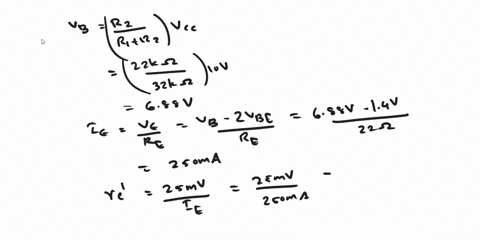 V_B = (R_2 / R_1+R_2) V_CC
= (22kΩ / 32kΩ) 10V
= 6.88V
I_E = V_E / R_E = V_B - 2V_BE / R_E = 6.88V - 1.4V / 22Ω
= 250mA
re' = 25mV / I_E = 25mV / 250mA =